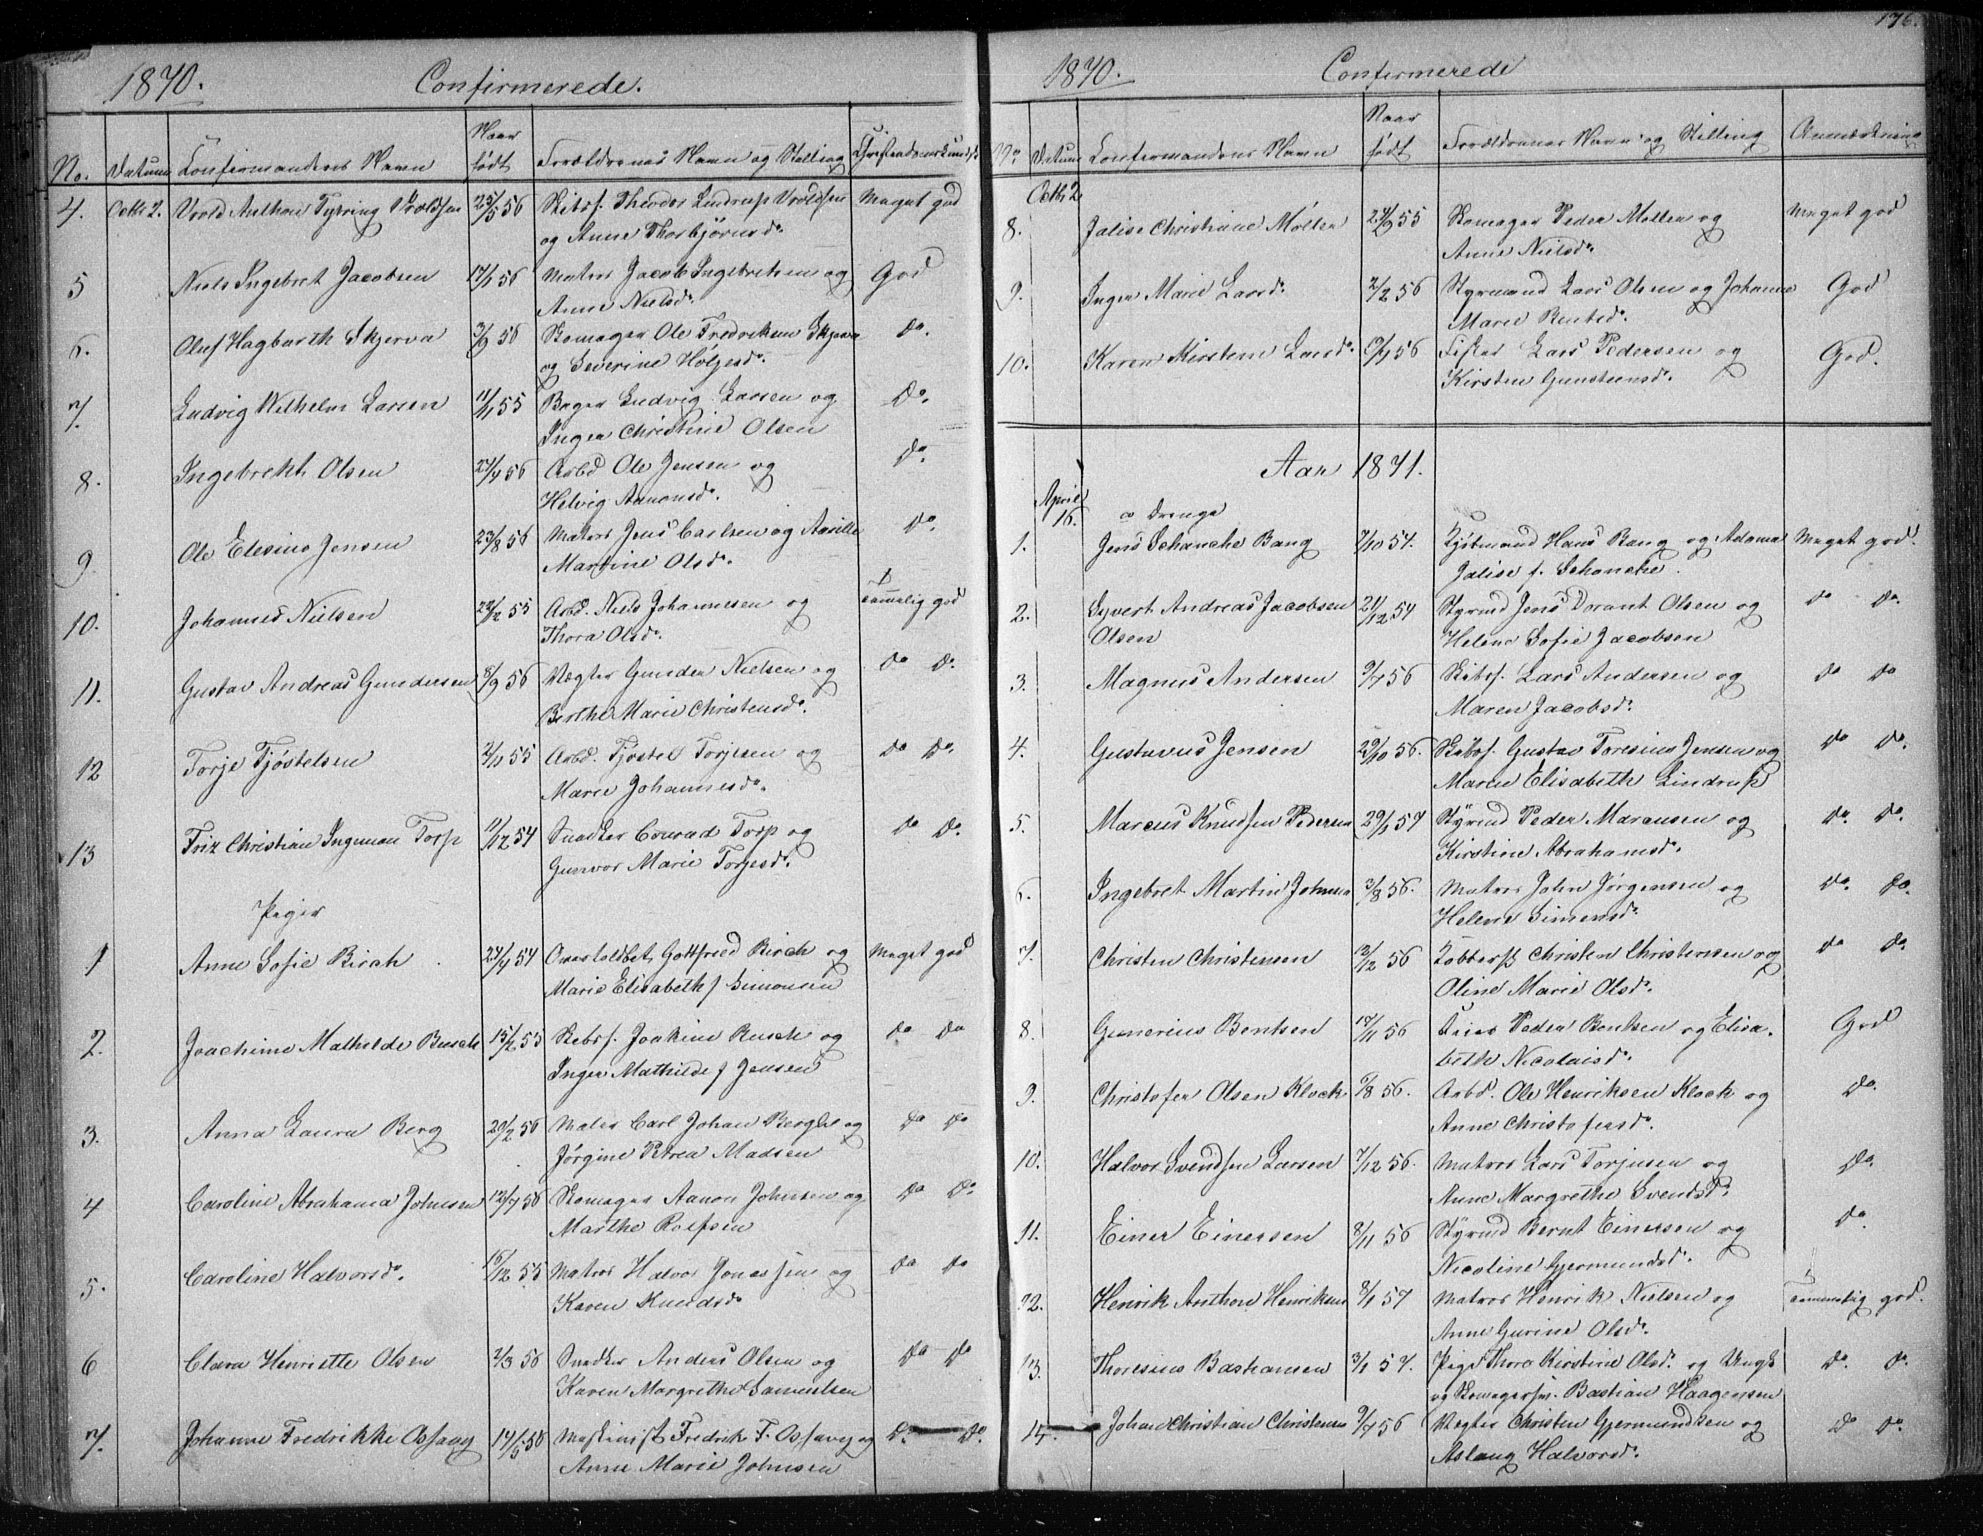 1870. Confirmerede.
No. Datum Confirmandens Navn Naar født Forældrenes Navn og Stilling Christendomskundsk.
4. Octb 2. Vrold Anthon Tybring Vroldsen 25/5 56 Skibsf. Theodor Lindrup Vroldsen Meget god
og Anne Thorbjørnsd.
5 Niels Ingebret Jacobsen 17/1 56 Matros Jacob Ingebretsen og God
Anne Nielsd.
6. Oluf Hagbarth Skjerva 3/9 56 Skomager Ole Fredriksen Skjerva Do.
og Severine Holjesd.
7. Ludvig Wilhelm Larsen 11/11 55 Bager Ludvig Larsen og Do.
Inger Christine Olsen
8. Ingebrekt Olsen 24/4 56 Arbd Ole Jensen og Do.
Helvig Aanonsd.
9 Ole Elesius Jensen 23/8 56 Matros Jens Carlsen og
Martine Olsd. Do.
10. Johannes Nielsen 22/12 55 Arbd. Niels Johannesen og temmelig god
Thora Olsd.
11. Gustav Andreas Gundersen 8/9 56 Vægter Gunder Nielsen og Do Do.
Berthe Marie Christensd.
12 Torje Tjøstelsen 2/11 55 Arbd. Tjøstel Torjesen og Do Do.
Marie Johannesd.
13 Friz Christian Ingeman Torp 11/12 54 Snedker Conrad Torp og Do Do.
Gunvor Marie Torjesd.
Piger
1 Anne Sofie Birch 24/4 54 Overtoldbet. Gottfried Birch og Meget god
Marie Elisabeth f Simonsen
2. Joachime Mathilde Busch 15/2 55 Skibsf. Joakim Busch og Do Do
Inger Mathilde f Jensen
3. Anna Laura Berg 20/2 56 Maler Carl Johan Berg og Do Do
Jørgine Petrea Madsen
4 Caroline Abrahama Johnsen 12/7 56 Skomager Aanon Johnsen og Do Do.
Marthe Rolfsen
5. Caroline Halvorsd. 16/12 55 Matros Halvor Jonassen og Do Do
Karen Knudsd
6 Clara Henriette Olsen 2/3 56 Snedker Anders Olsen og Do Do
Karen Margrethe Samuelsen
7. Johanne Fredrikke Ossavg 14/5 56 Maskinist Fredrik F. Ossavg og Do. Do.
Anne Marie Johnsen
176.
1870. Confirmerede
No Datum Confirmandens Navn Naar født Forældrenes Navn og Stilling Anmærkning
Octb 2
8. Jalise Christiane Møller 24/9 55 Skomager Peder Møller og Meget god
Anne Nielsd.
9. Inger Marie Larsd. 2/2 56 Styrmand Lars Olsen og Johanne God
Marie Bentsd.
10. Karen Kirstine Larsd. 6/4 56 Fisker Lars Pedersen og God.
Kirsten Gunstensd.
Aar 1871.
April 16. a Drenge
1. Jens Schanche Bang 7/10 54. Kjøbmand Hans Bang og Adama Meget god.
Jalise f. Schanche.
2. Syvert Andreas Jacobsen 21/12 54 Styrmd Jens Dorant Olsen og Do Do.
Olsen Helene Sofie Jacobsen
3. Magnus Andersen 9/7 56 Skibsf. Lars Andersen og Do Do
Maren Jacobsd.
4. Gustavus Jensen 29/10 56. Skibsf. Gustav Toresius Jensen og Do Do.
Maren Elisabeth Lindrup
5. Marcus Knudsen Pedersen 29/1 57 Styrmd Peder Marcusen og Do. Do.
Kirstine Abrahamsd.
6. Ingebret Martin Johnsen 3/8 56. Matros John Jørgensen og Do. Do.
Helene Simensd.
7. Christen Christensen 13/12 56 Kobbersl. Christen Christensen og Do Do.
Oline Marie Olsd.
8. Gunerius Bentsen 17/11 56 Peder Bentsen og Elisa- God
beth Nicolaisd.
9. Christofer Olsen Klock 7/8 56. Arbd. Ole Henriksen Klock og Do.
Anne Christofersd.
10. Halvor Svendsen Larsen 7/12 56. Matros Lars Torjusen og Do.
Anne Margrethe Svendsd.
11. Einer Einersen 8/11 56 Styrmd Bernt Einersen og Do
Nicoline Gjermundsd.
12. Henrik Anthon Henriksen 8/1 57 Matros Henrik Nielsen og temmelig god.
Anne Gurine Olsd.
13. Thoresius Bastiansen 3/1 57. Pige Thora Kirstine Olsd. og Ungk Do. Do.
og Skomagersv. Bastian Haagensen
14. Johan Christian Christensen 9/7 56 Vægter Christen Gjermundsen og Do Do.
Aslaug Halvorsd.